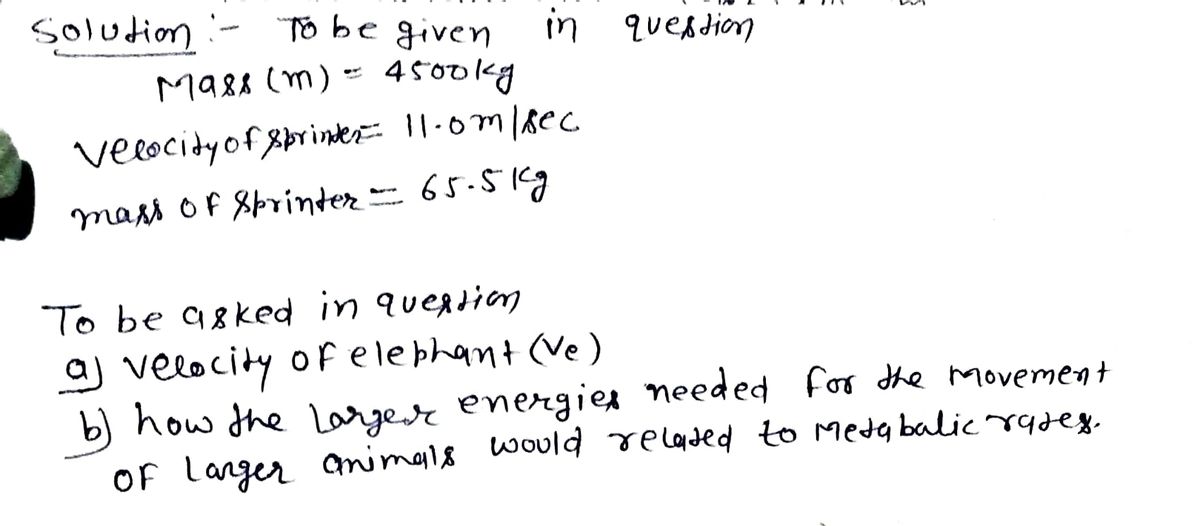 Solution :- To be given in question
Mass (m) = 4500kg
velocity of sprinter = 11.0m/sec
mass of sprinter = 65.5 kg
To be asked in question
a) velocity of elephant (Ve)
b) how the larger energies needed for the movement
of larger animals would related to metabalic rates.